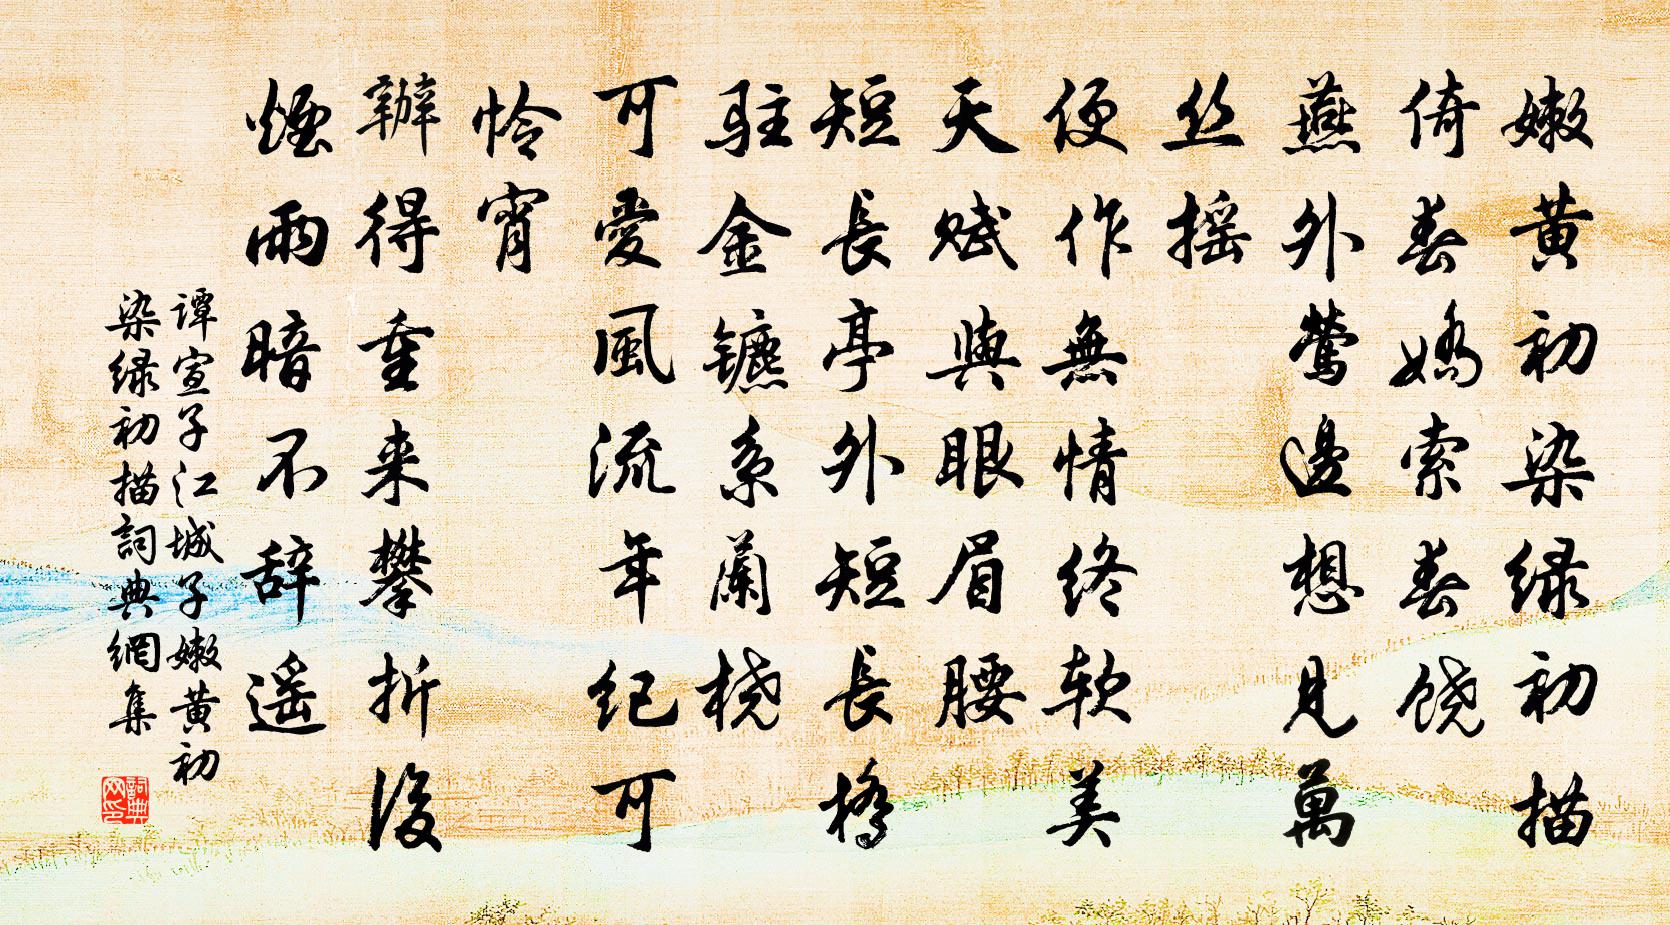 嫩黄初染绿初描
倚春嬌索春饶
燕外鶯邊想見萬
丝摇
便作無情终软美
天赋與眼眉腰
短長亭外短長橋
駐金镳系蘭桡
可愛風流年纪可
怜宵
辦得重来攀折後
煙雨暗不辞遥
谭宣子江城子嫩黄初
染绿初描詞典網集
詞典
网印